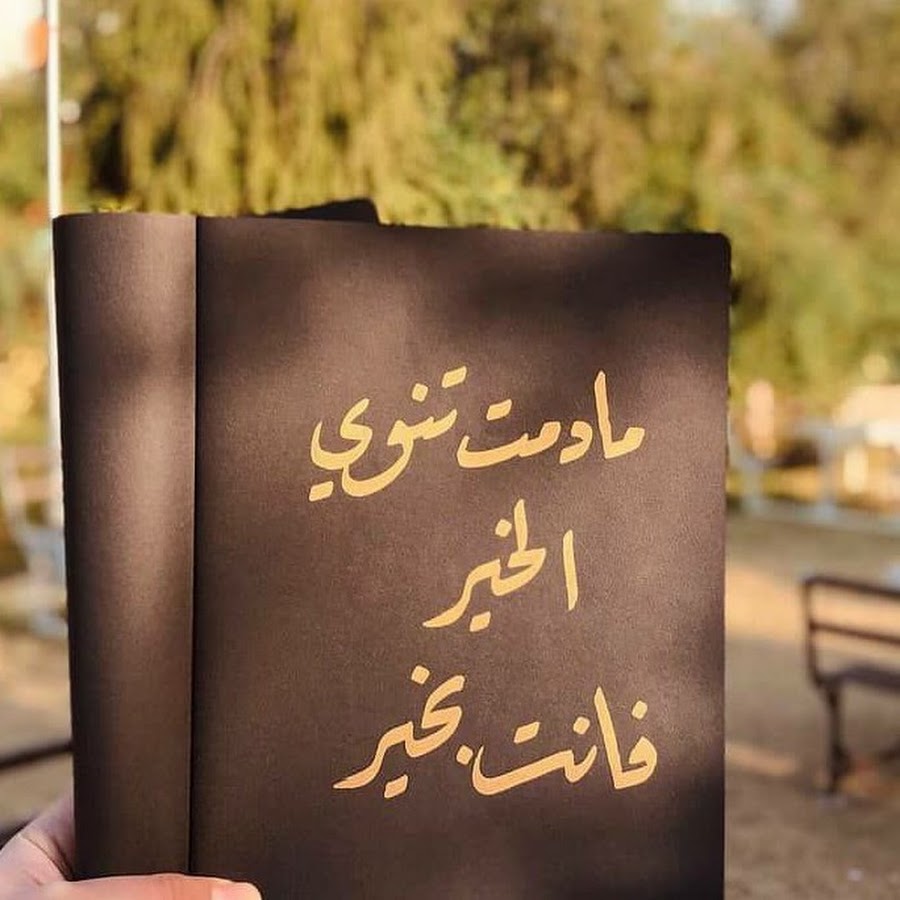 مادمت تنوي
الخير
فانت بخير